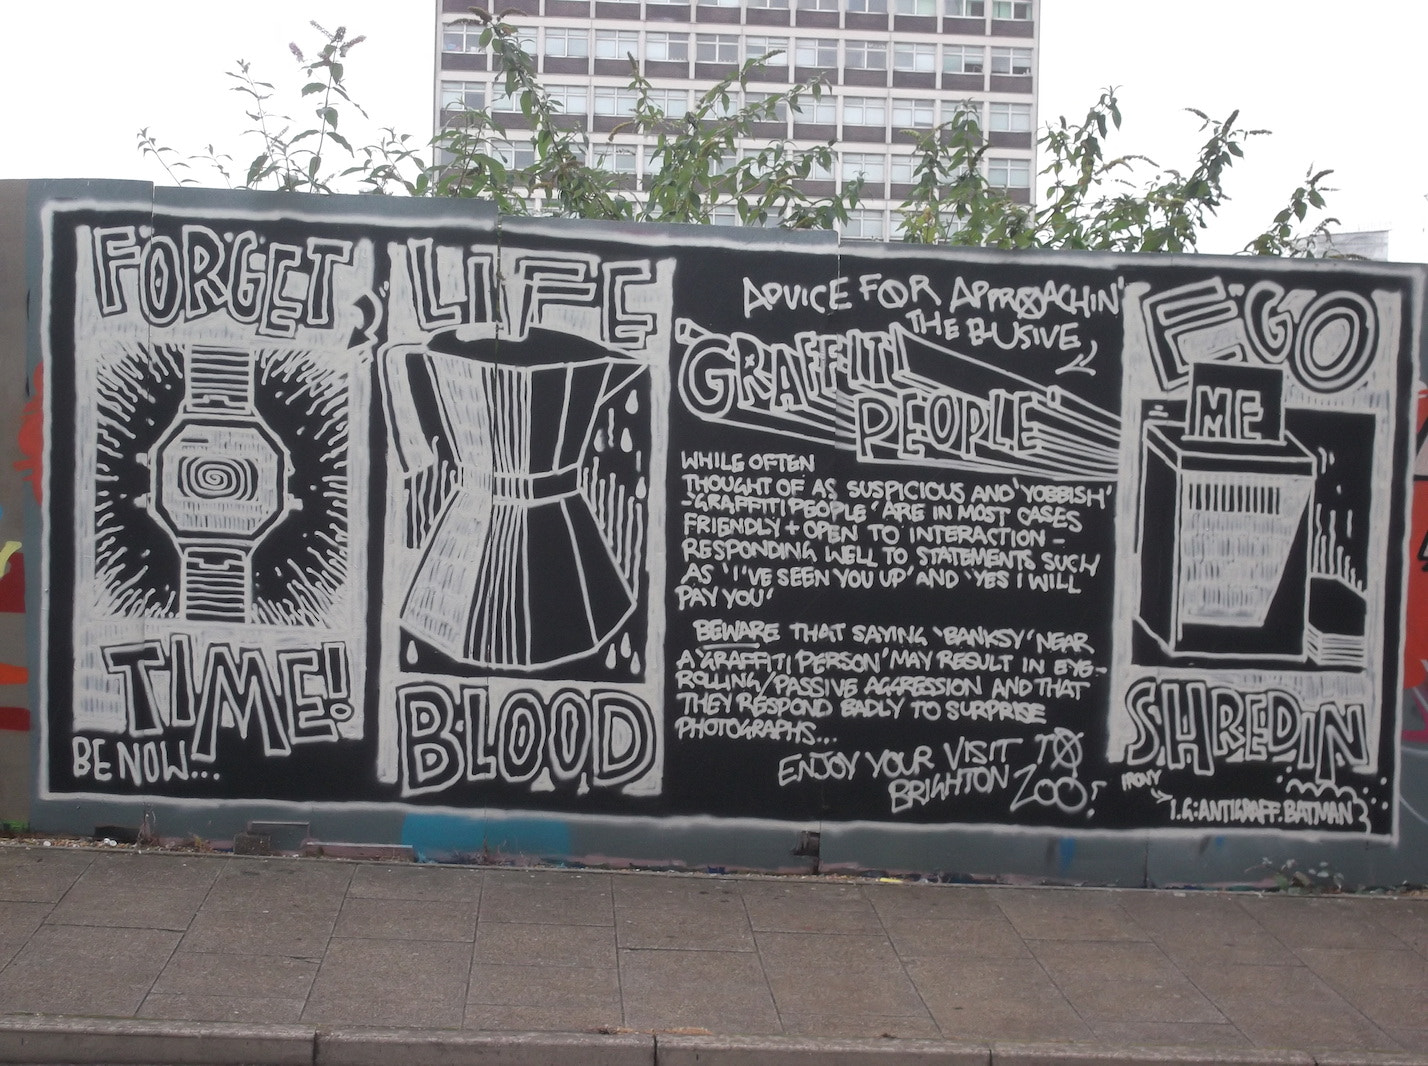 FORGET
TIME!
BE NOW...
LIFE
BLOOD
ADVICE FOR APPROACHIN'
THE ELUSIVE
'GRAFFITI
PEOPLE'
WHILE OFTEN
THOUGHT OF AS SUSPICIOUS AND 'YOBBISH'
'GRAFFITI PEOPLE' ARE IN MOST CASES
FRIENDLY + OPEN TO INTERACTION -
RESPONDING WELL TO STATEMENTS SUCH
AS 'I'VE SEEN YOU UP' AND 'YES I WILL
PAY YOU'
BEWARE THAT SAYING 'BANKSY' NEAR
A 'GRAFFITI PERSON' MAY RESULT IN EYE-
ROLLING/PASSIVE AGGRESSION AND THAT
THEY RESPOND BADLY TO SURPRISE
PHOTOGRAPHS...
ENJOY YOUR VISIT TO
BRIGHTON ZOO!
EGO
ME
SHREDIN
IRONY
I.G:ANTIGRAFF.BATMAN